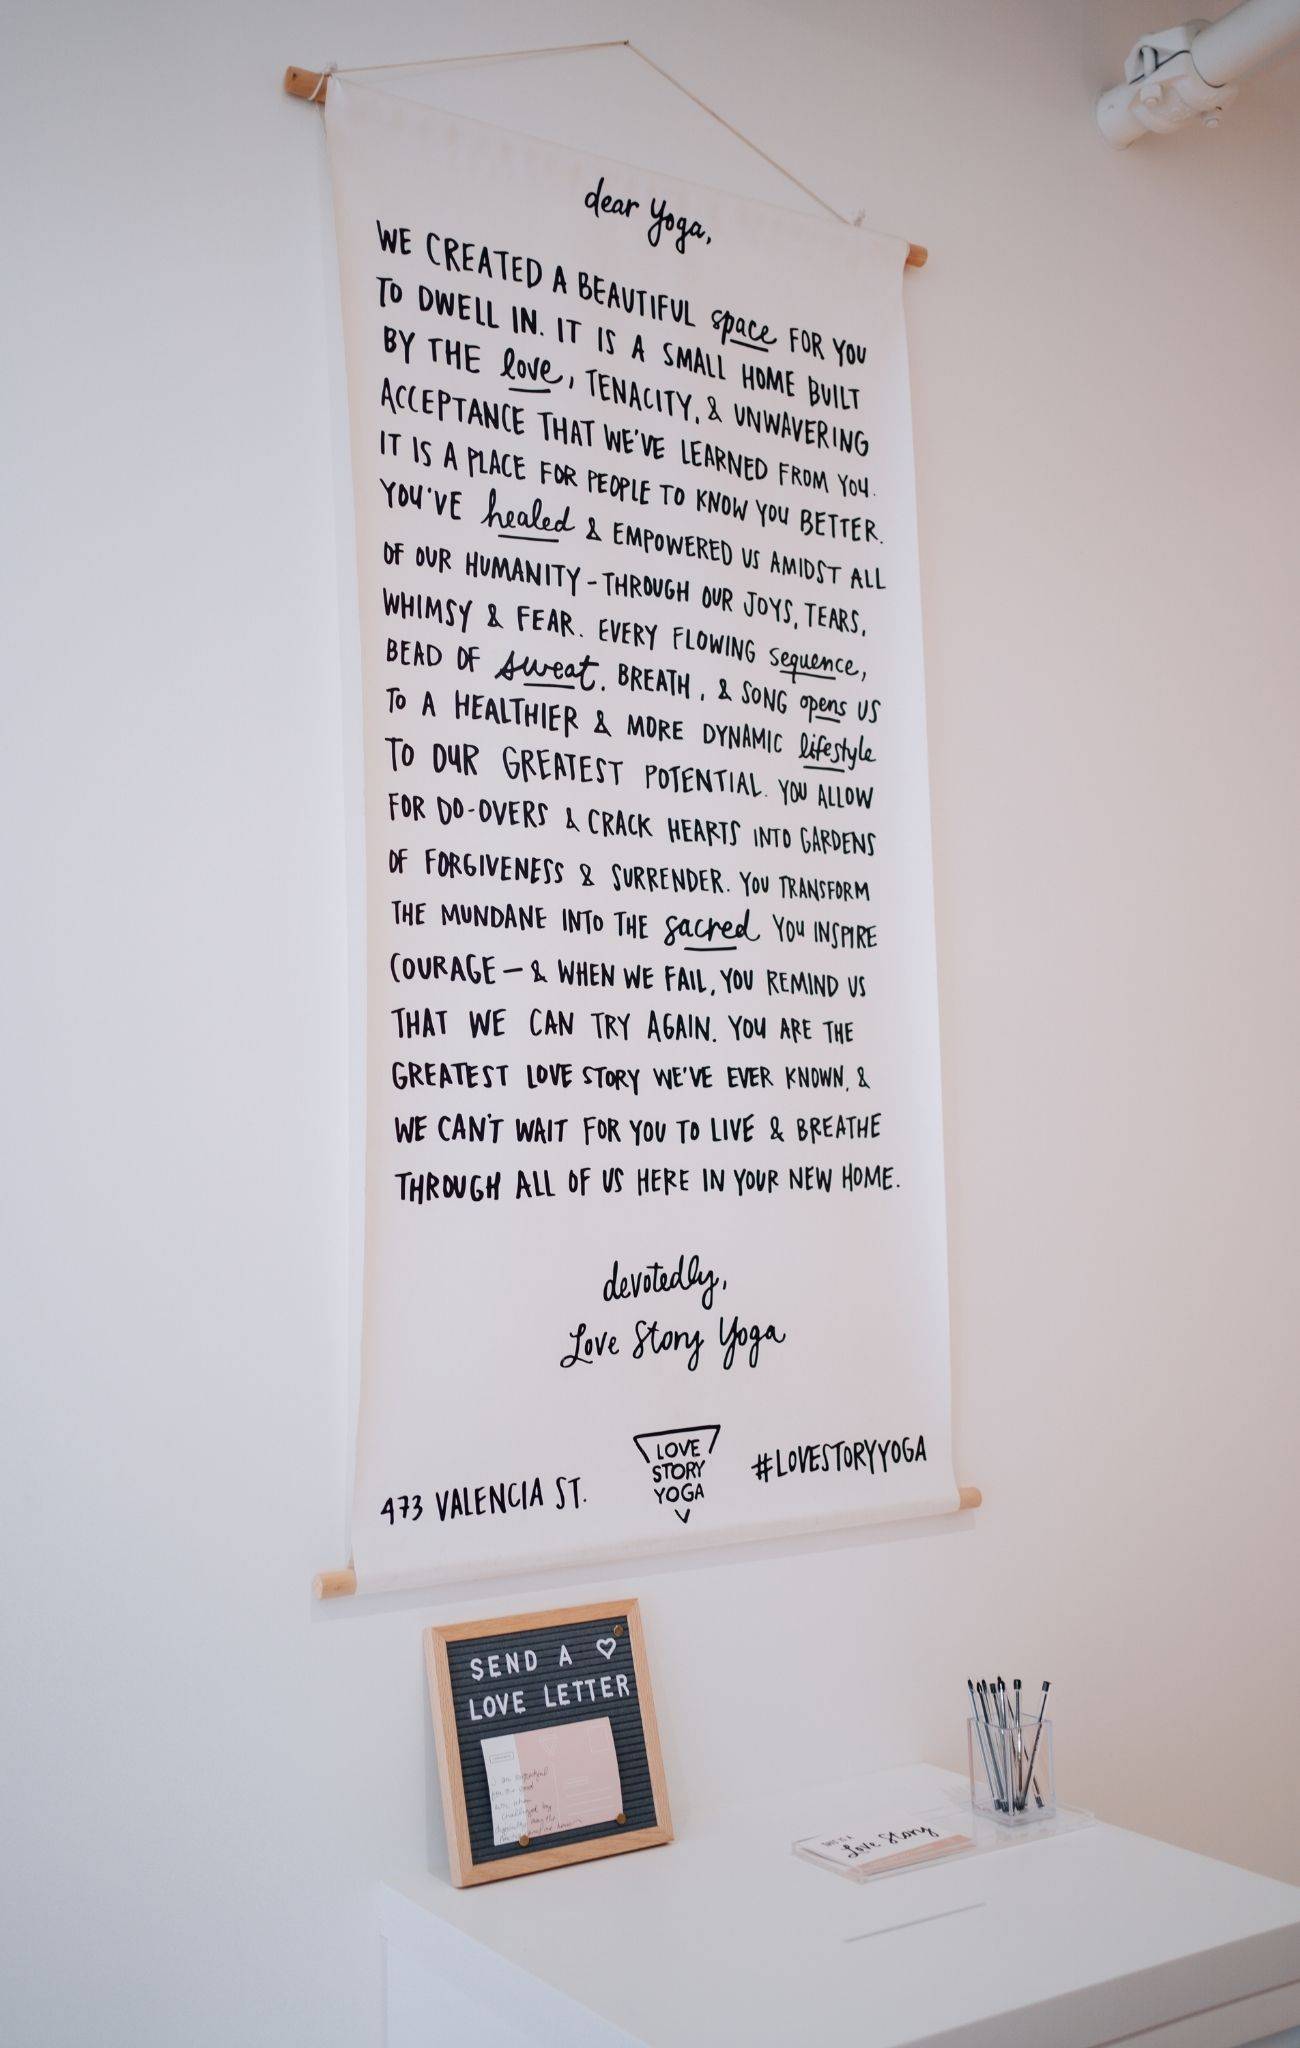 dear Yoga,
WE CREATED A BEAUTIFUL space FOR YOU
TO DWELL IN. IT IS A SMALL HOME BUILT
BY THE love, TENACITY, & UNWAVERING
ACCEPTANCE THAT WE'VE LEARNED FROM YOU.
IT IS A PLACE FOR PEOPLE TO KNOW YOU BETTER.
YOU'VE healed & EMPOWERED US AMIDST ALL
OF OUR HUMANITY - THROUGH OUR JOYS, TEARS,
WHIMSY & FEAR. EVERY FLOWING sequence,
BEAD OF sweat, BREATH, & SONG opens US
TO A HEALTHIER & MORE DYNAMIC lifestyle
TO OUR GREATEST POTENTIAL. YOU ALLOW
FOR DO-OVERS & CRACK HEARTS INTO GARDENS
OF FORGIVENESS & SURRENDER. YOU TRANSFORM
THE MUNDANE INTO THE sacred YOU INSPIRE
COURAGE — & WHEN WE FAIL, YOU REMIND US
THAT WE CAN TRY AGAIN. YOU ARE THE
GREATEST LOVE STORY WE'VE EVER KNOWN, &
WE CAN'T WAIT FOR YOU TO LIVE & BREATHE
THROUGH ALL OF US HERE IN YOUR NEW HOME.
devotedly,
Love Story Yoga
473 VALENCIA ST.
LOVE
STORY
YOGA
#LOVESTORYYOGA
SEND A ♡
LOVE LETTER
Love Story